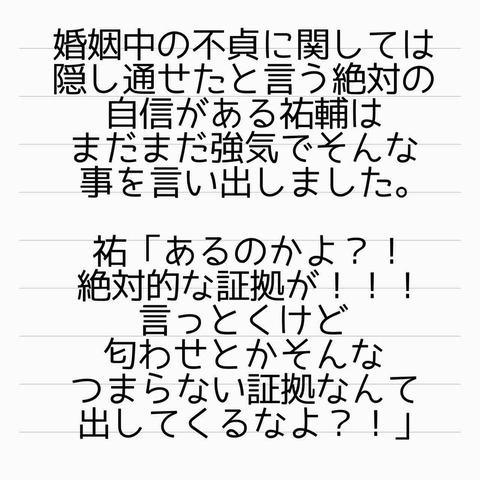 婚姻中の不貞に関しては
隠し通せたと言う絶対の
自信がある祐輔は
まだまだ強気でそんな
事を言い出しました。
祐「あるのかよ？！
絶対的な証拠が！！！
言っとくけど
匂わせとかそんな
つまらない証拠なんて
出してくるなよ？！」